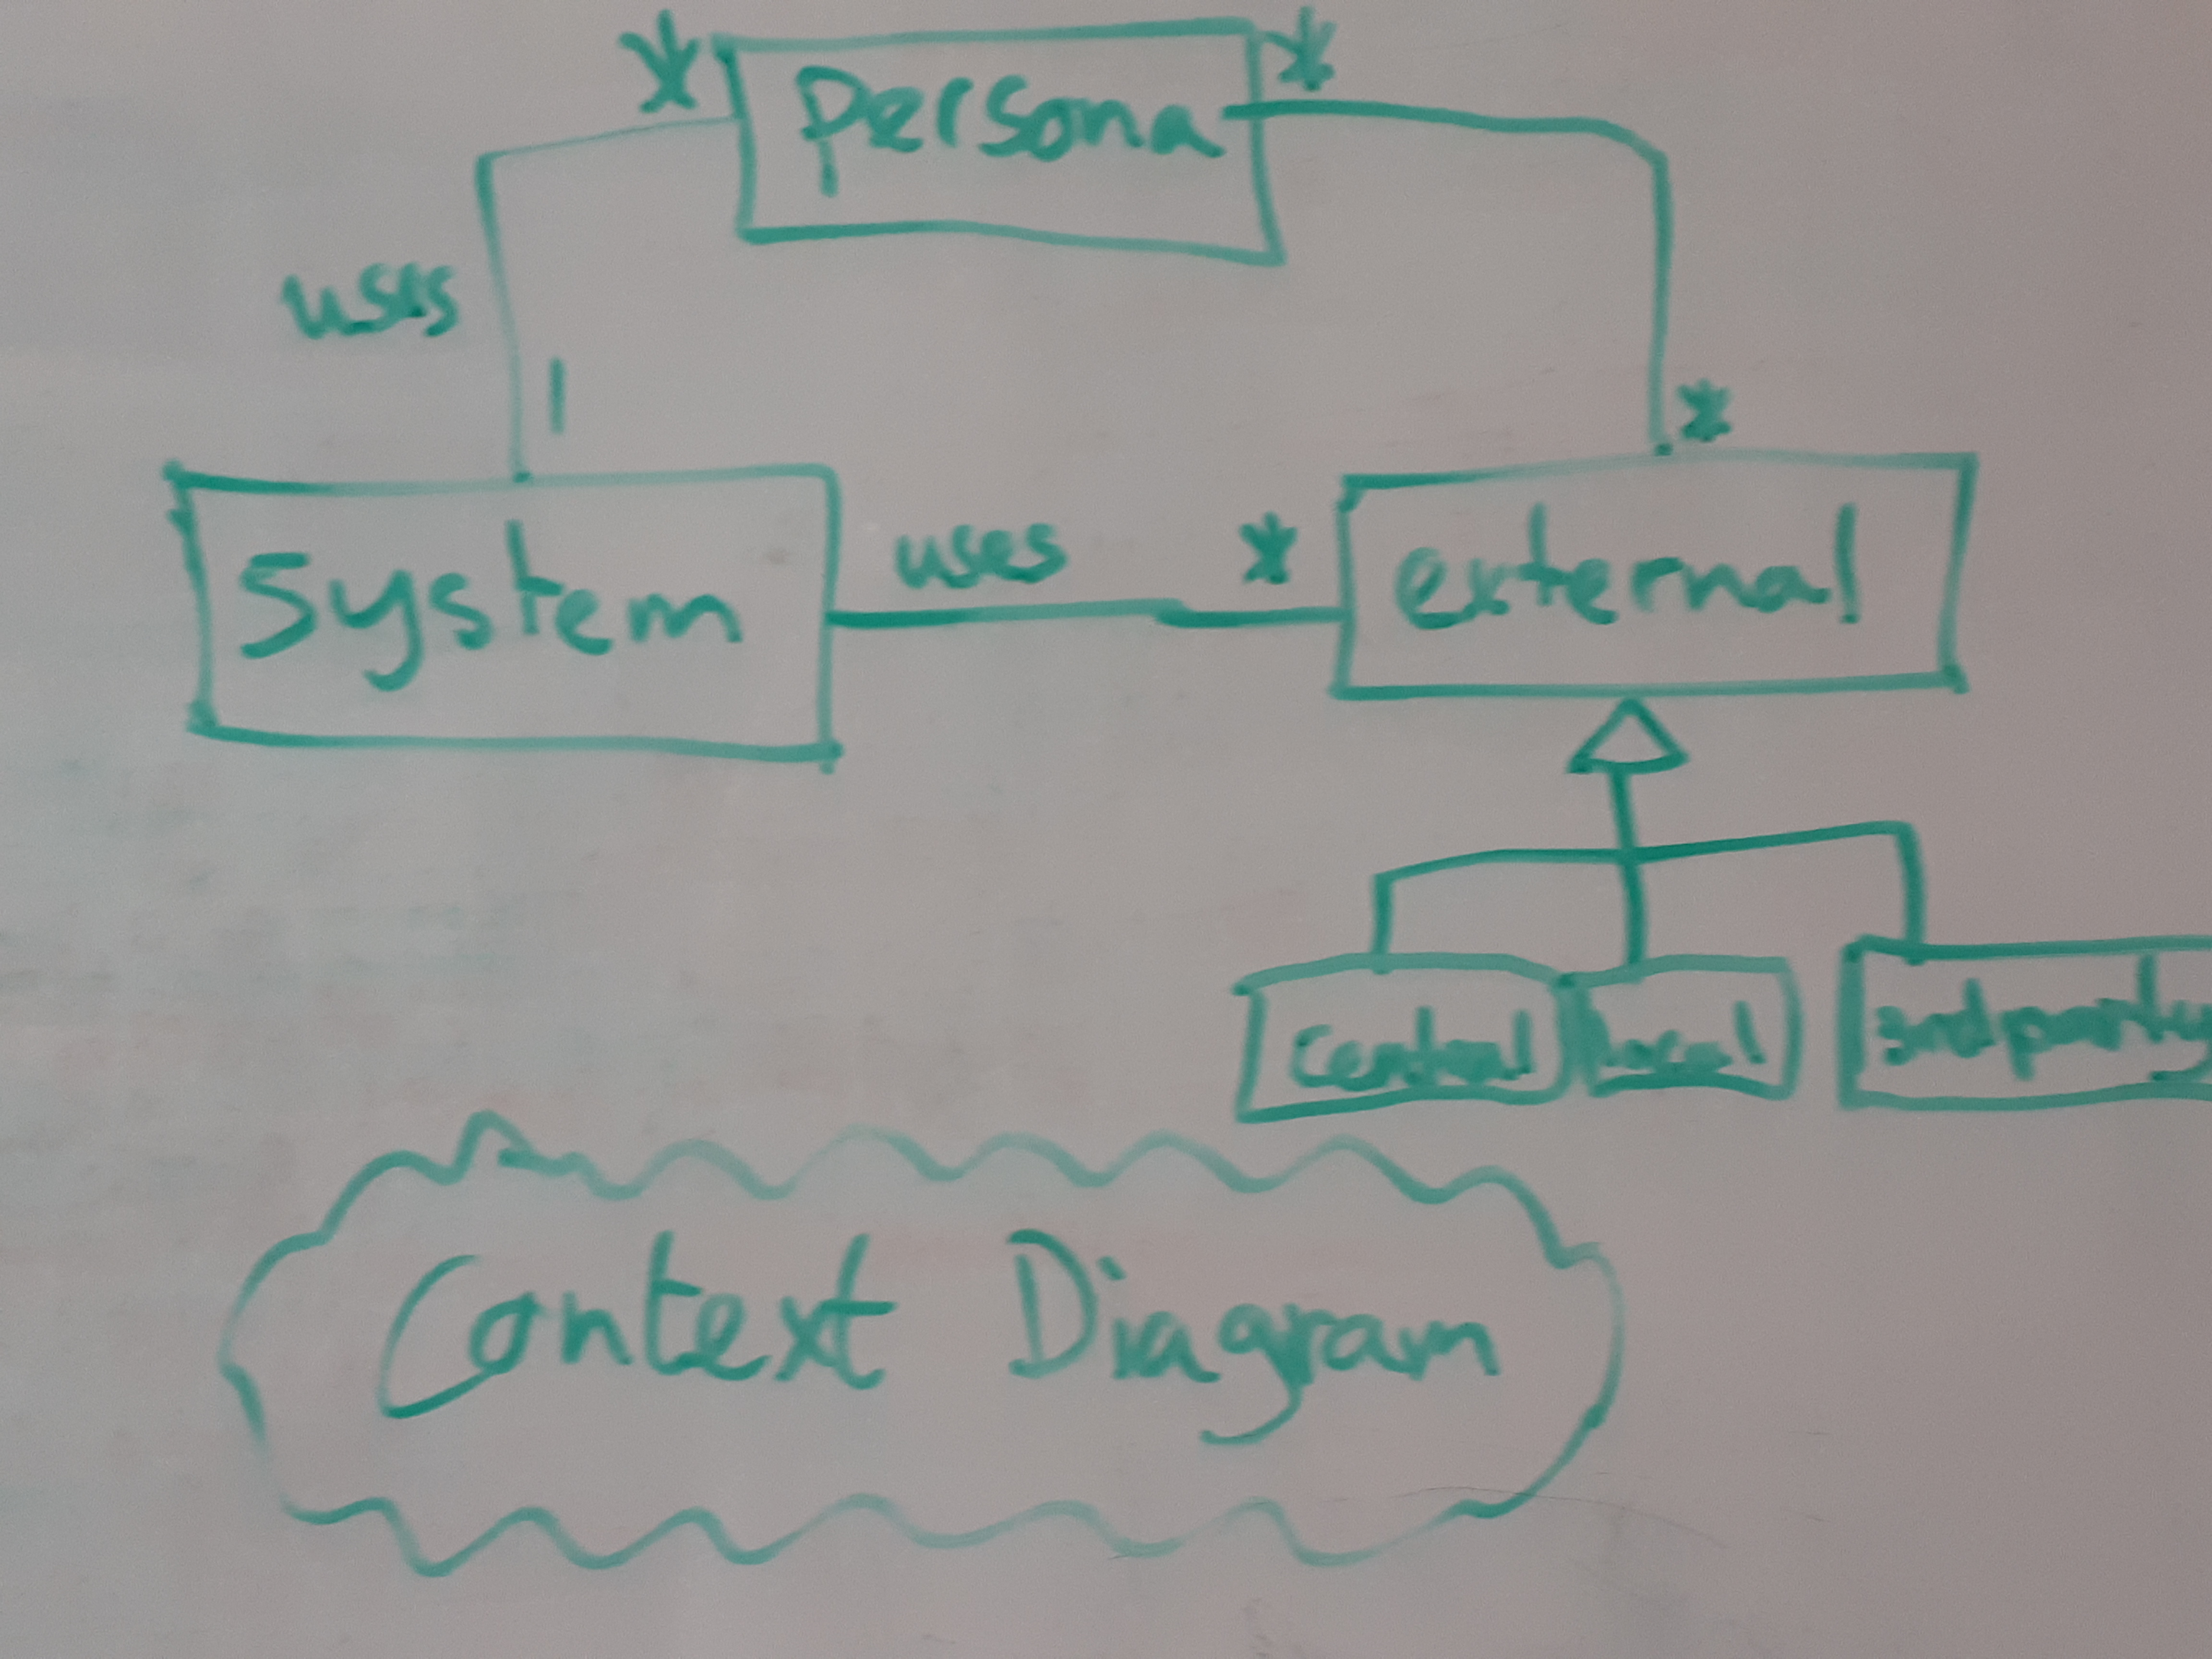 * persona *
uses
1
*
System uses * external
Central local 3rd party
Context Diagram